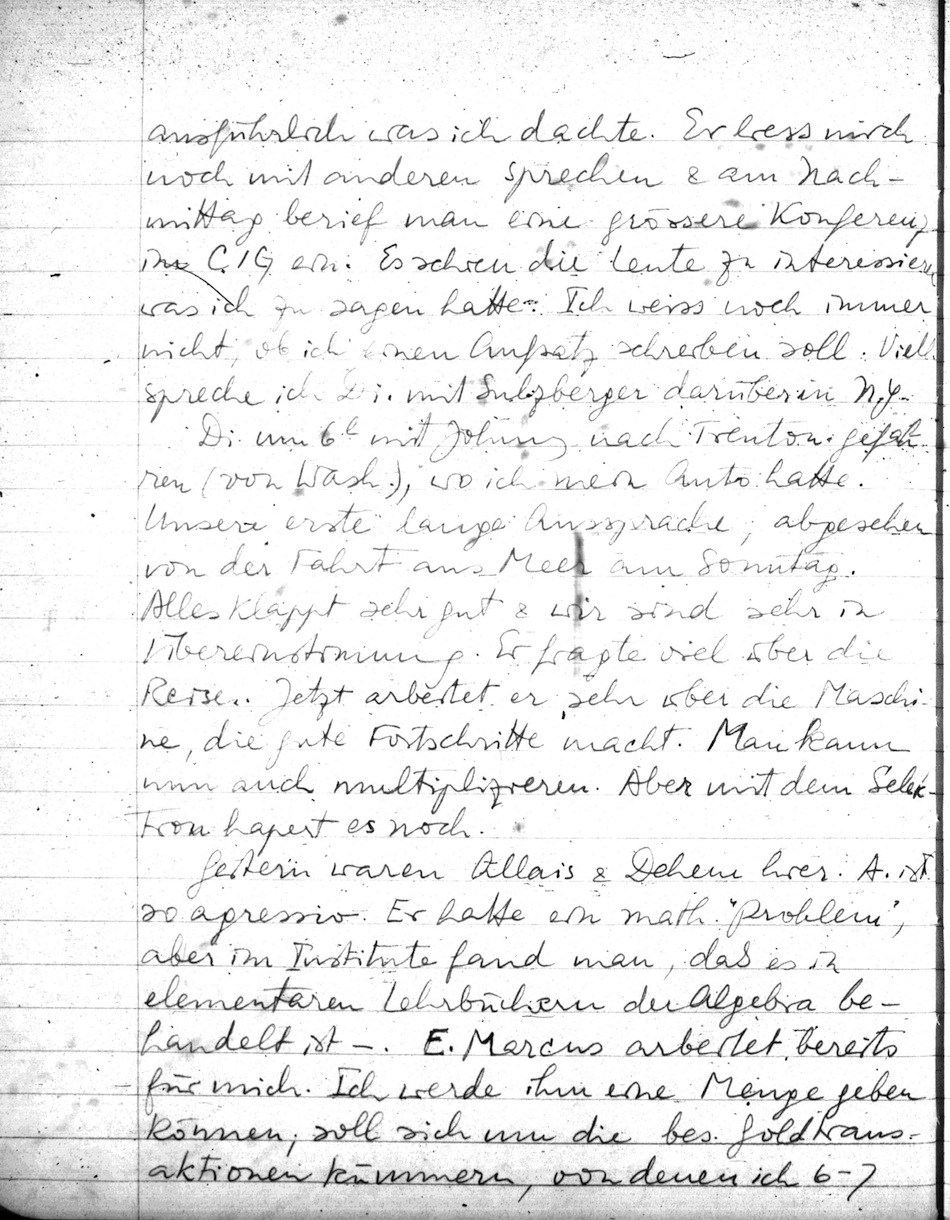 ausführlich was ich dachte. Er liess mich
noch mit anderen sprechen & am Nach-
mittag berief man eine grössere Konferenz
im C.I.G. ein. Es schien die Leute zu interessieren
was ich zu sagen hatte. Ich weiss noch immer
nicht, ob ich einen Aufsatz schreiben soll. Viell.
spreche ich Di. mit Sulzberger darüber in N.Y.
Di. um 6h mit Johnny nach Trenton gefah-
ren (von Wash.), wo ich mein Auto hatte.
Unsere erste lange Aussprache, abgesehen
von der Fahrt ans Meer am Sonntag.
Alles klappt sehr gut & wir sind sehr in
Übereinstimmung. Er fragte viel über die
Reise.. Jetzt arbeitet er sehr über die Maschi-
ne, die gute Fortschritte macht. Man kann
nun auch multiplizieren. Aber mit dem Selek-
tron hapert es noch.
Gestern waren Allais & Dehem hier. A. ist
so agressiv. Er hatte ein math. "Problem",
aber im Institute fand man, daS es in
elementaren Lehrbüchern der Algebra be-
handelt ist –. E. Marcus arbeitet bereits
für mich. Ich werde ihm eine Menge geben
können; soll sich um die bes. Goldtrans-
aktionen kümmern, von denen ich 6-7